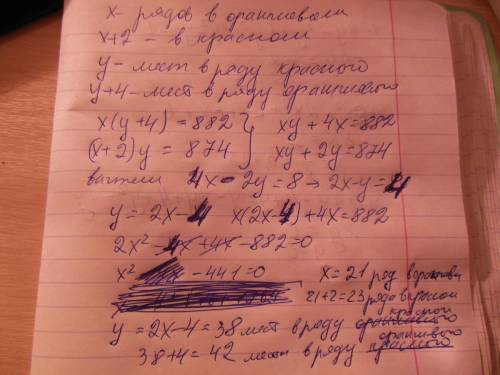 x - рядов в оранжевом
x+2 - в красном
y - мест в ряду красного
y+4 - мест в ряду оранжевого
x(y+4) = 882 } xy+4x=882
(x+2)y = 874 xy+2y=874
вычтем 4x-2y=8 → 2x-y=4
y = 2x-4 x(2x-4)+4x=882
2x²-4x+4x-882=0
x² -441=0 x=21 ряд в оранжевом
21+2=23 ряда в красном
y=2x-4=38 мест в ряду красном
38+4=42 мест в ряду оранжевого